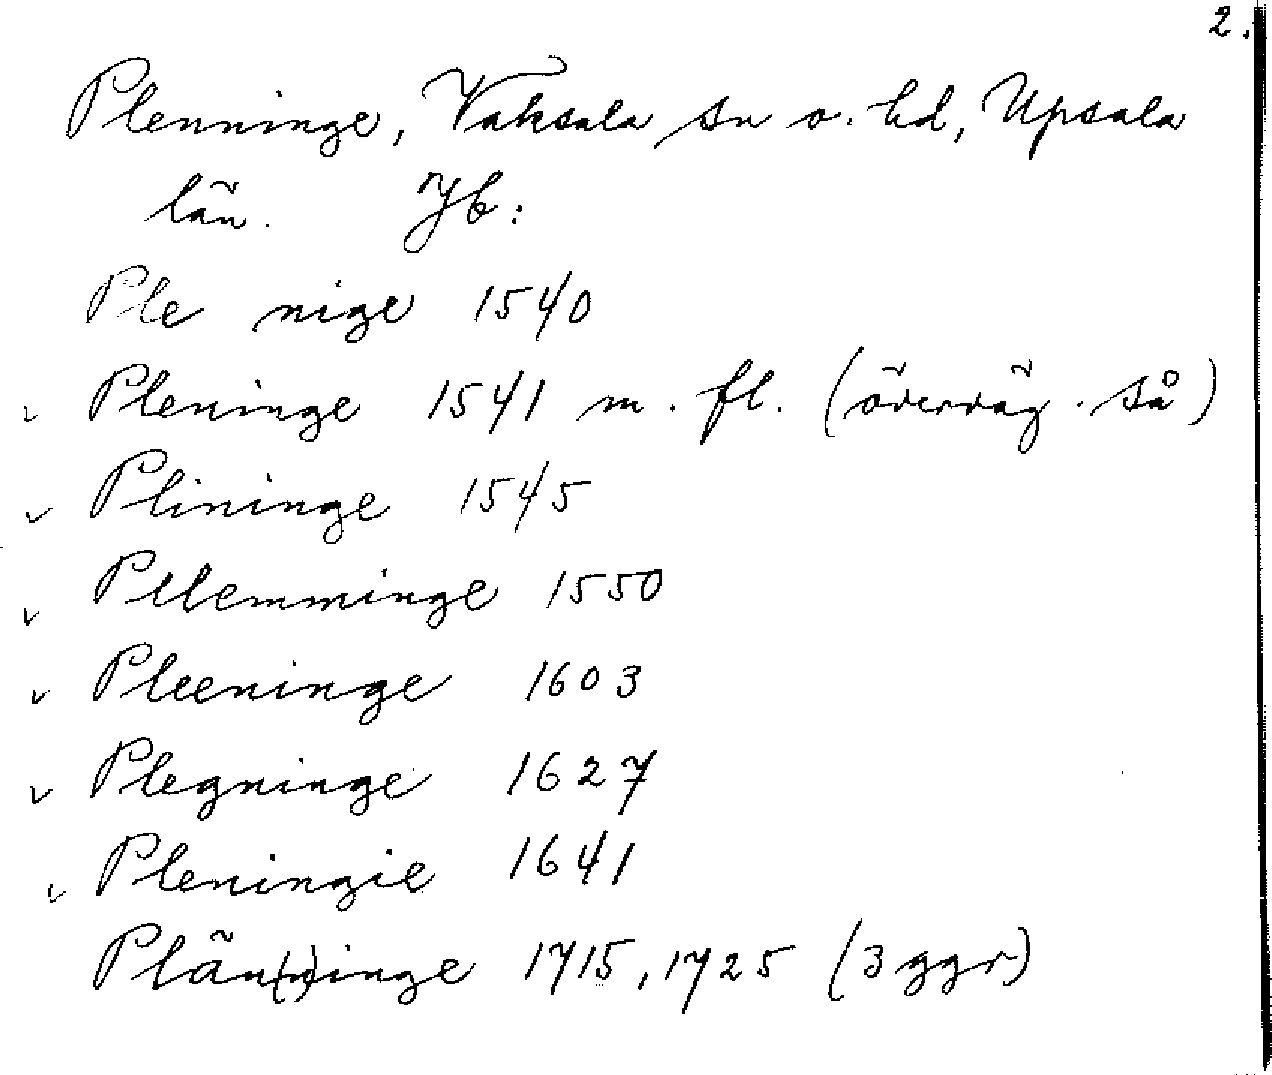 2.
Plenninge, Vaksala sn o. hd, Upsala
län. Jb:
Ple nige 1540
v Pleninge 1541 m. fl. (överväg. så)
v Plininge 1545
v Pllemminge 1550
v Pleeninge 1603
v Plegninge 1627
v Pleningie 1641
Plän(n)inge 1715, 1725 (3 ggr)